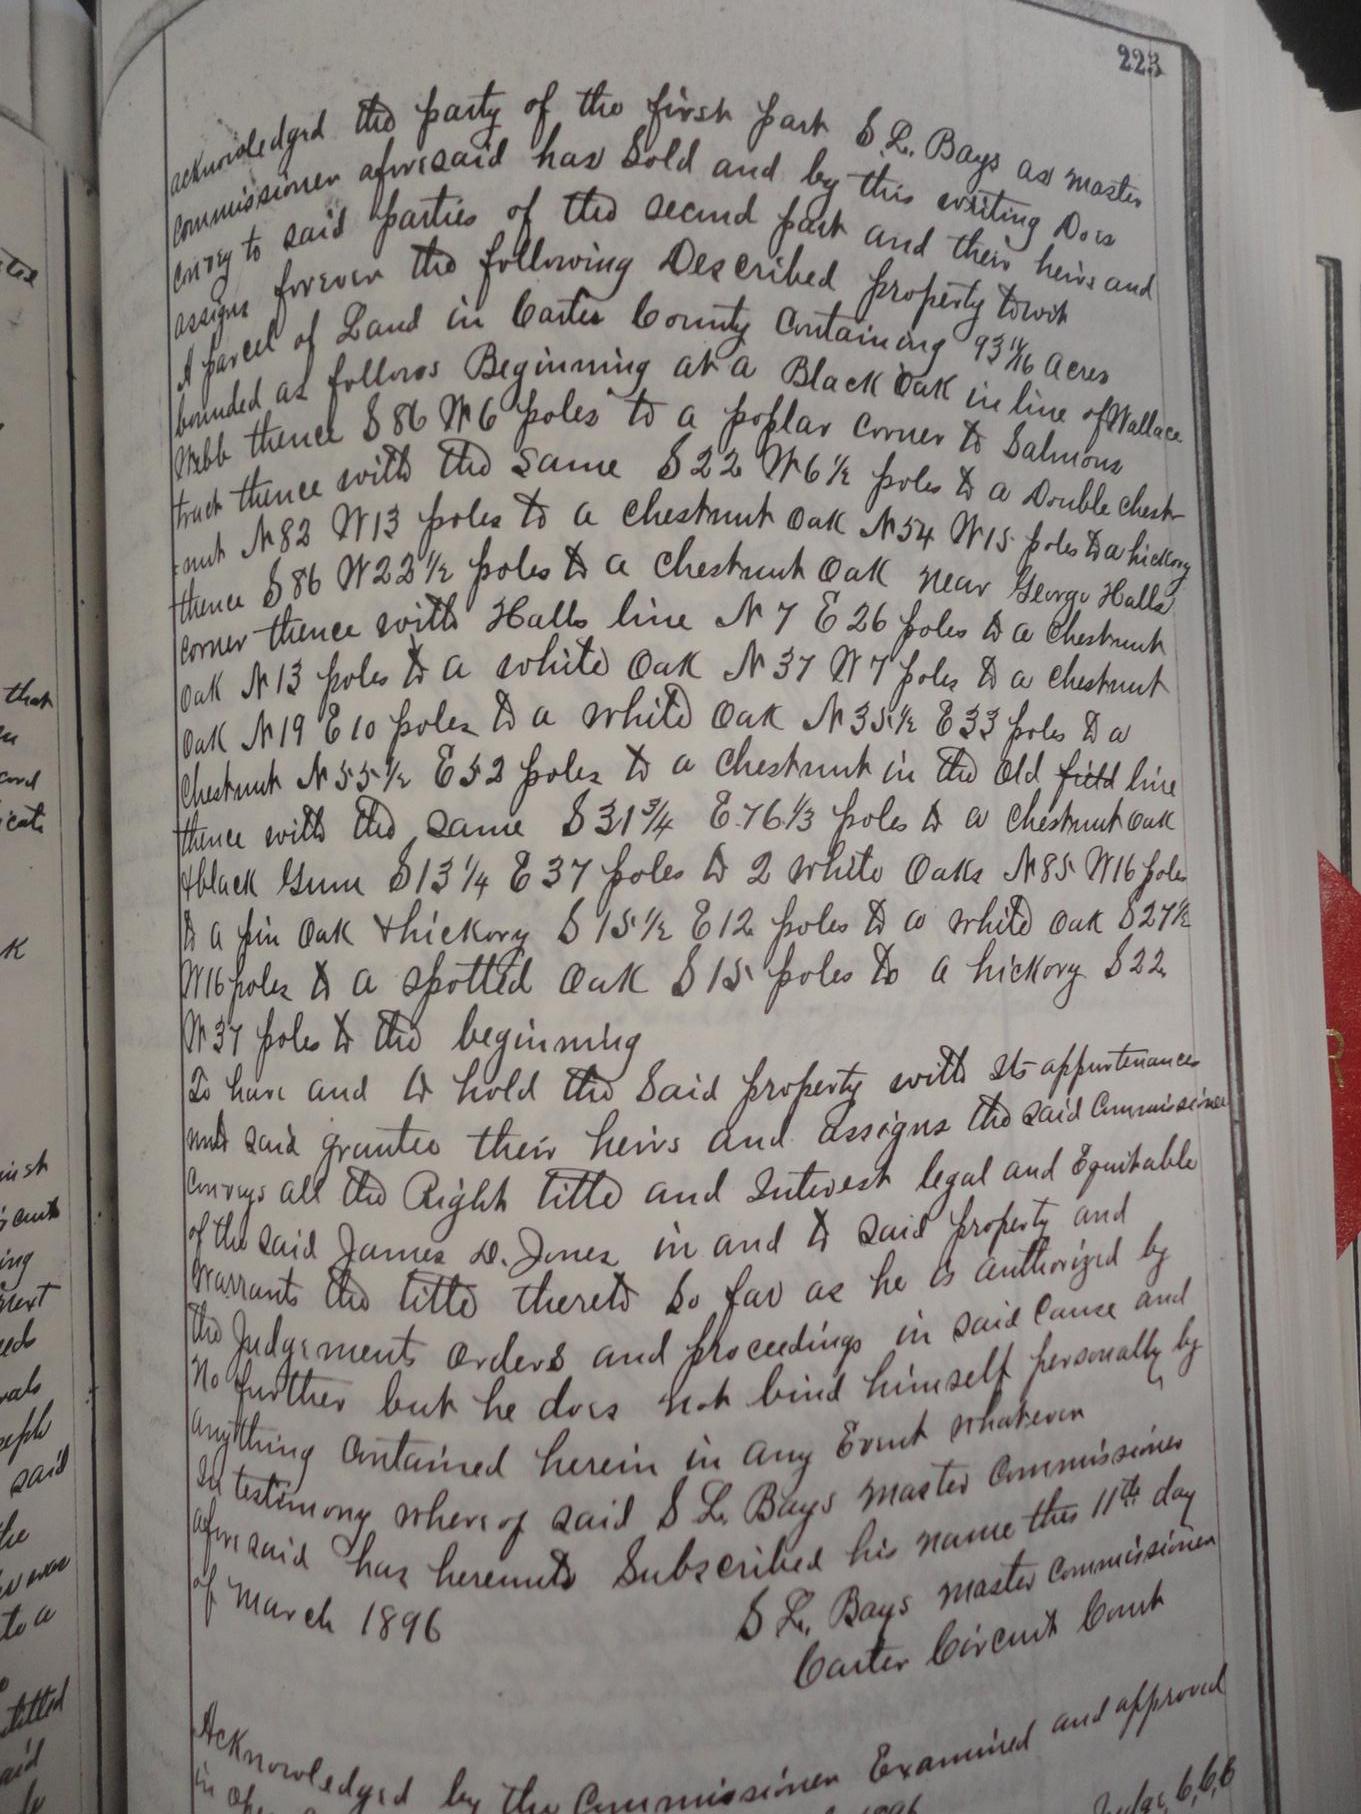 223
acknowledged the party of the first part S. L. Bays as master
commissioner aforesaid has Sold and by this writing Does
convey to said parties of the second part and their heirs and
assigns forever the following Described property towit
A parcel of Land in Carter County Containing 93 11/16 acres
bounded as follows Beginning at a Black Oak in line of Wallace
Webb thence S 86 W 6 poles to a poplar corner to Salmons
tract thence with the same S 22 W 6 1/2 poles to a Double chest-
-nut N 82 W 13 poles to a chestnut Oak N 54 W 15 poles to a hickory
thence S 86 W 22 1/2 poles to a chestnut Oak near George Halls
corner thence with Halls line N 7 E 26 poles to a chestnut
Oak N 13 poles to a white Oak N 37 W 7 poles to a chestnut
Oak N 19 E 10 poles to a white Oak N 35 1/2 E 33 poles to a
Chestnut N 55 1/2 E 52 poles to a chestnut in the Old field line
thence with the same S 31 3/4 E 76 1/3 poles to a chestnut Oak
& black Gum S 13 1/4 E 37 poles to 2 white Oaks N 85 W 16 poles
to a pin Oak & hickory S 15 1/2 E 12 poles to a white Oak S 27 1/2
W 16 poles to a spotted Oak S 15 poles to a hickory S 22
W 37 poles to the beginning
To have and to hold the Said property with its appurtenances
unto said grantee their heirs and assigns the said Commissioner
Conveys all the Right title and Interest legal and Equitable
of the said James D. Jones in and to said property and
Warrants the title thereto So far as he is authorized by
the Judgements Orders and proceedings in said Cause and
No further but he does not bind himself personally by
anything Contained herein in any Event whatever
In testimony whereof said S L. Bays Master Commissioner
aforesaid has hereunto Subscribed his name this 11th day
of March 1896
S L. Bays Master Commissioner
Carter Circuit Court
Acknowledged by the Commissioner Examined and approved
in
1896
C,C,C
that
said
to a